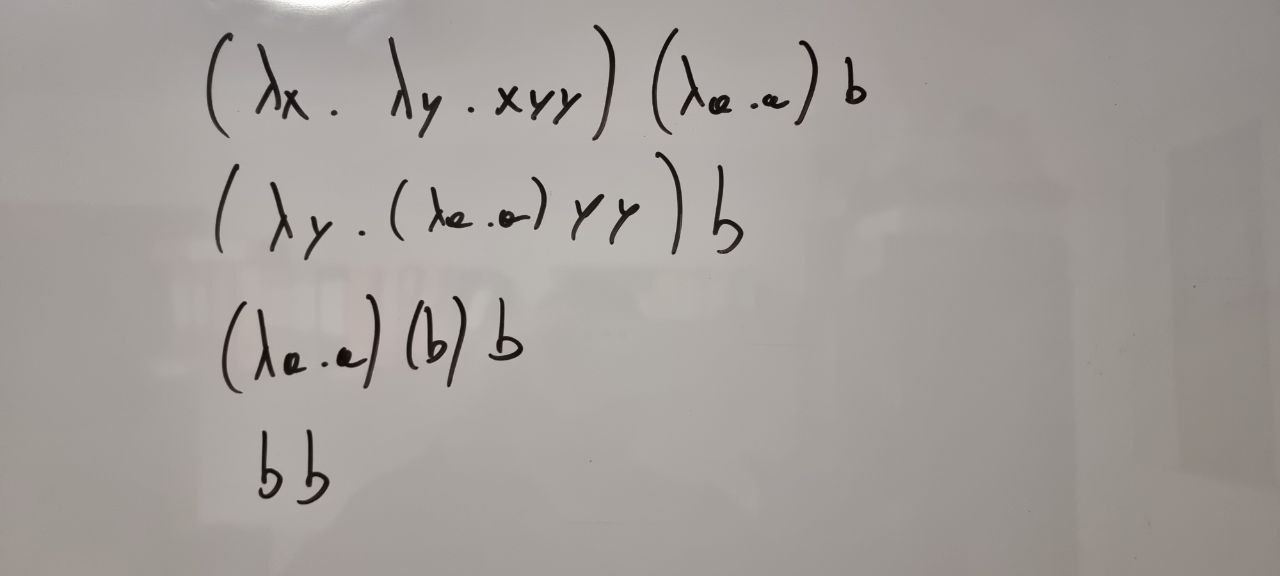 (λx. λy. xyy) (λa.a) b
(λy. (λa.a) yy) b
(λa.a) (b) b
bb